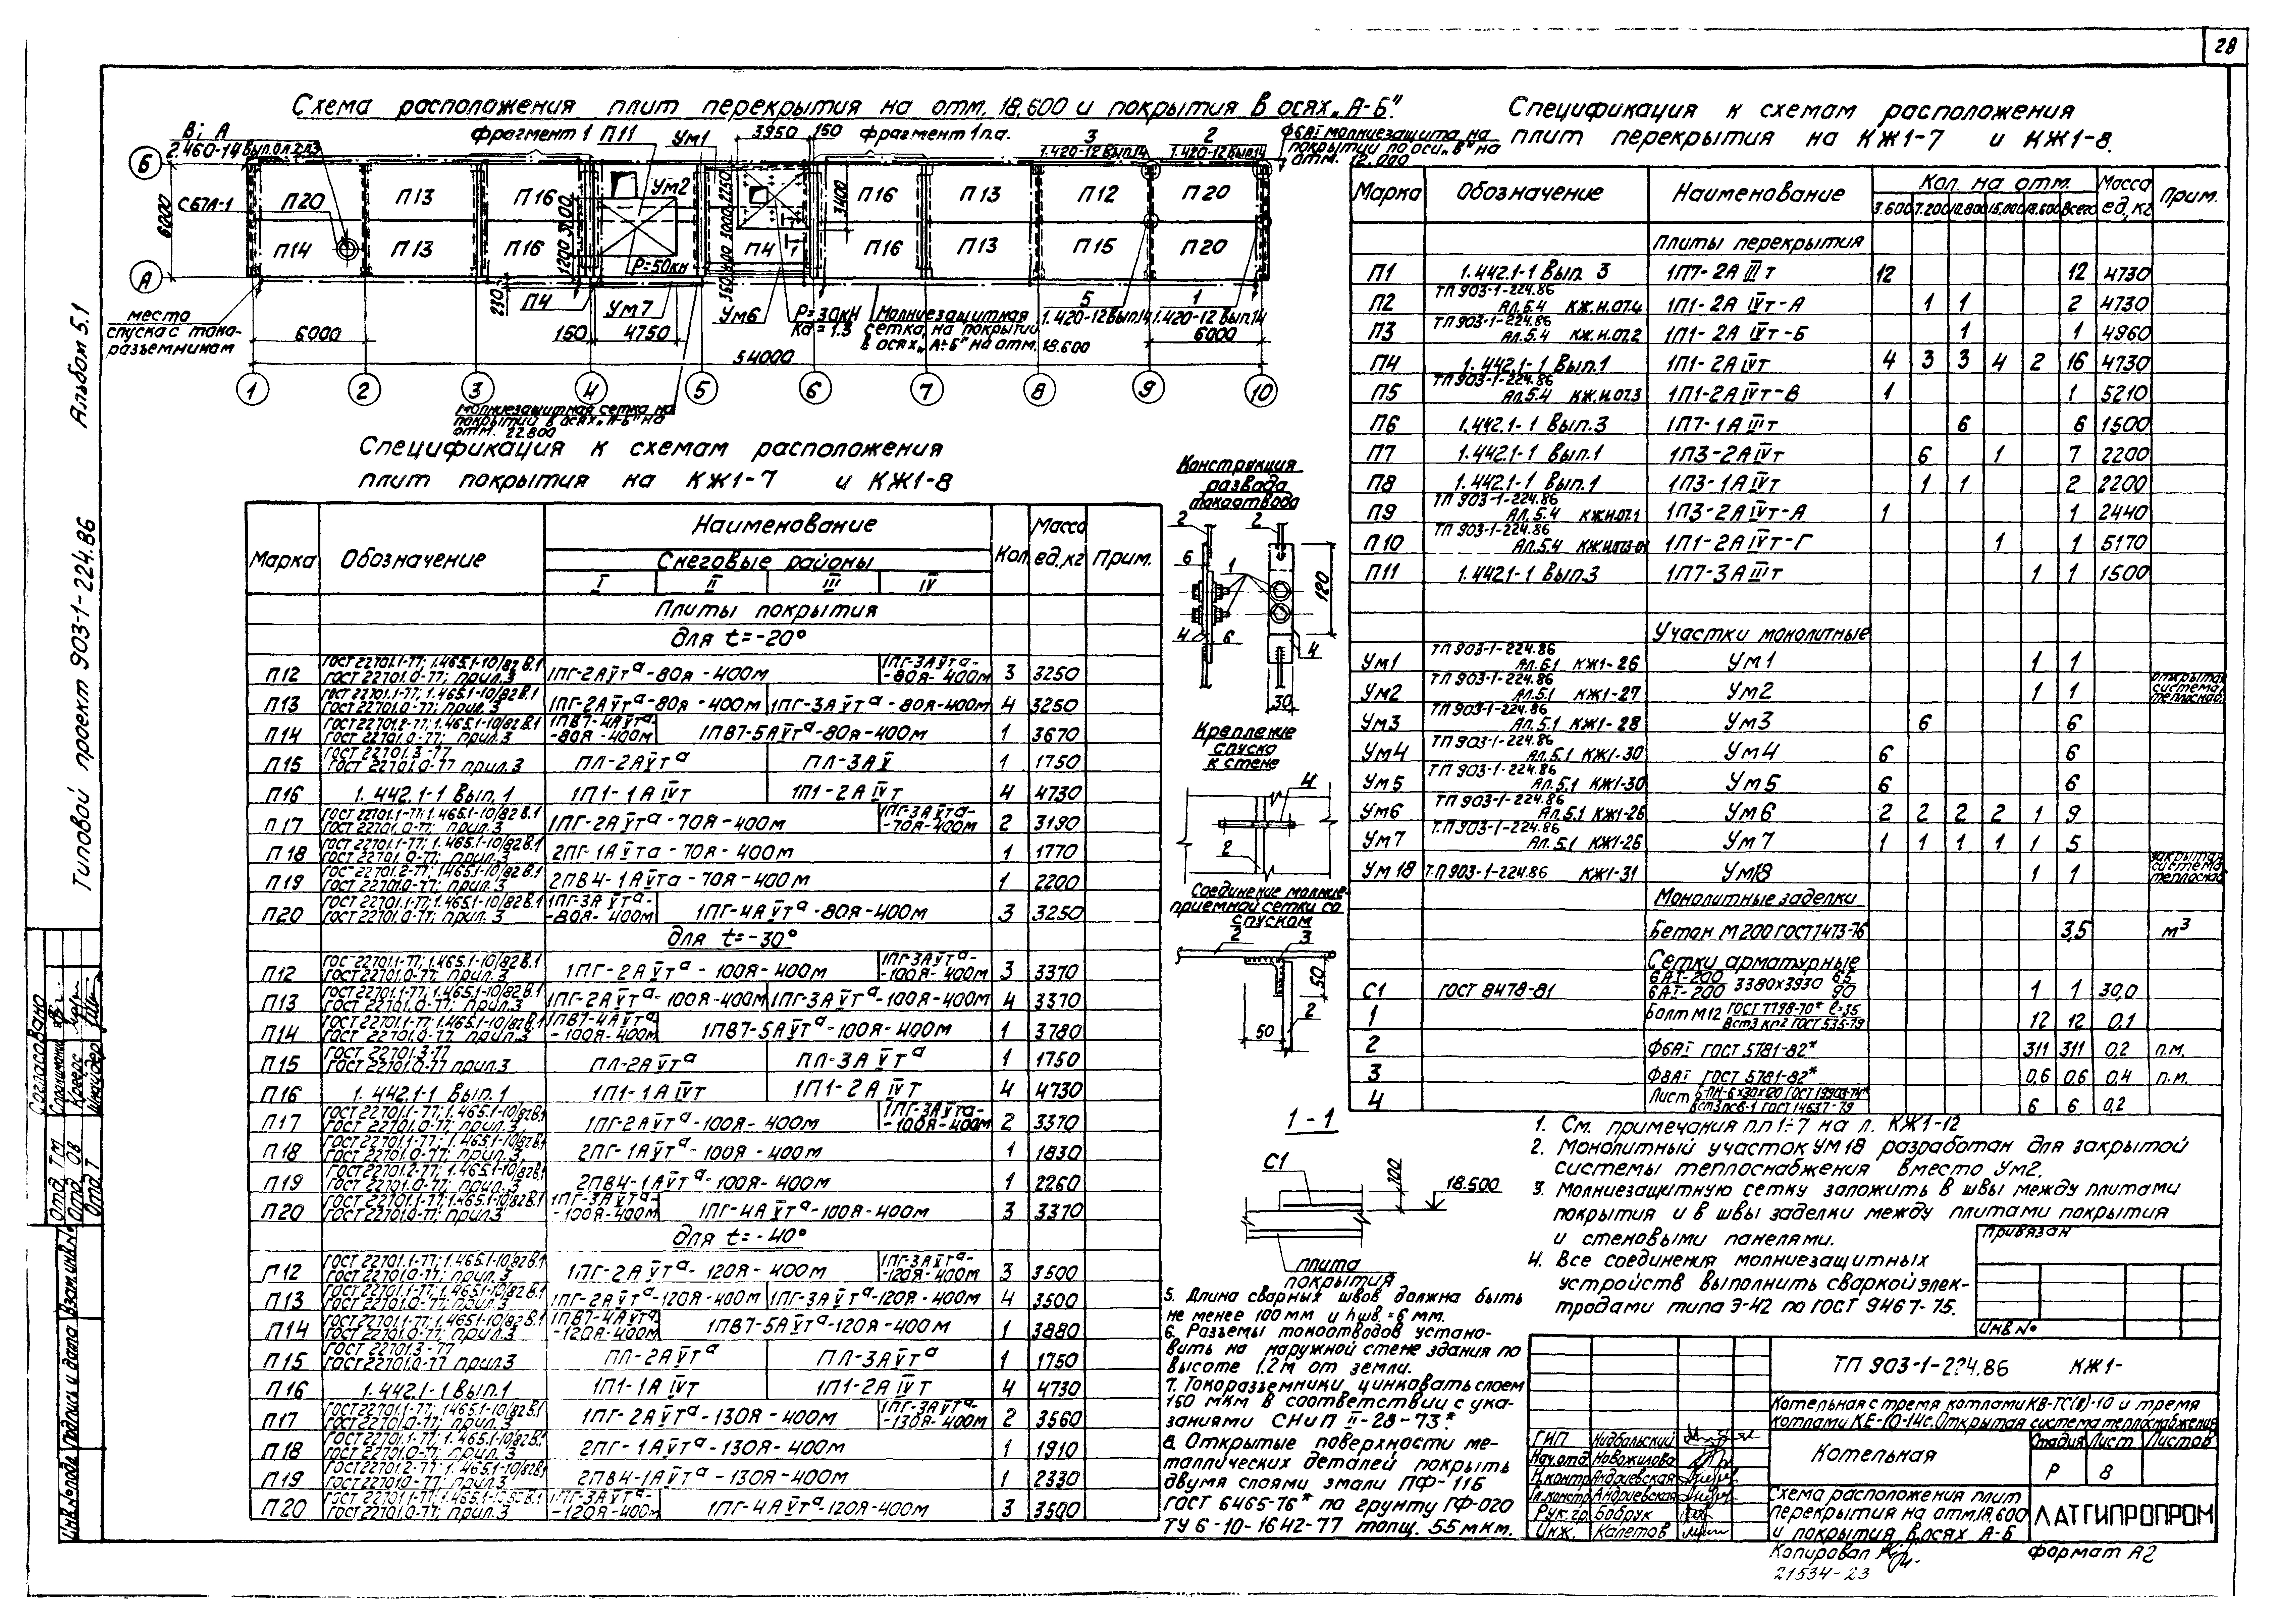 28
Схема расположения плит перекрытия на отм. 18,600 и покрытия в осях „А-Б".
В; А
2.460-14
фрагмент 1 П11
Ум1
3950 150
фрагмент 1 п.а.
3
1.420-12 Вып.14
2
1.420-12 Вып.14
Ф6АI молниезащита на
покрытии по оси „В" на
отм. 12.000
Б
С67Л-1
П20
П13
П16
Ум2
П16
П13
П12
П20
6000
П14
П13
П16
П4
П16
П13
П15
П20
А
1200
3400
230
Р=50кн
П4
Ум7
Ум6
Р=30кН
Кд=1.3
Молниезащитная
сетка на покрытии
в осях „А÷Б" на отм. 18.600
5
1.420-12 Вып.14
1
1.420-12 Вып.14
место
спуска с токо-
разъемником
6000
150 4750
6000
54000
1 2 3 4 5 6 7 8 9 10
Молниезащитная сетка на
покрытий в осях „А-Б" на
отм. 22.800
Спецификация к схемам расположения
плит покрытия на КЖ1-7 и КЖ1-8
Марка Обозначение Наименование Кол. Масса ед.,кг Прим.
Снеговые районы
I II III IV
Плиты покрытия
для t=-20°
П12 ГОСТ 22701.1-77; 1.465.1-10/82 В.1 ГОСТ 22701.0-77; прил.3 1ПГ-2АVтa-80Я-400м 1ПГ-3АVтa-80Я-400м 3 3250
П13 ГОСТ 22701.1-77; 1.465.1-10/82 В.1 ГОСТ 22701.0-77; прил.3 1ПГ-2АVтa-80Я-400м 1ПГ-3АVтa-80Я-400м 4 3250
П14 ГОСТ 22701.2-77; 1.465.1-10/82 В.1 ГОСТ 22701.0-77; прил.3 1ПВ7-4АVтa-80Я-400м 1ПВ7-5АVтa-80Я-400м 1 3670
П15 ГОСТ 22701.3-77 ГОСТ 22701.0-77 прил.3 ПЛ-2АVтa ПЛ-3АV 1 1750
П16 1.442.1-1 Вып.1 1П1-1АIVт 1П1-2АIVт 4 4730
П17 ГОСТ 22701.1-77; 1.465.1-10/82 В.1 ГОСТ 22701.0-77; прил.3 1ПГ-2АVтa-70Я-400м 1ПГ-3АVтa-70Я-400м 2 3190
П18 ГОСТ 22701.1-77; 1.465.1-10/82 В.1 ГОСТ 22701.0-77; прил.3 2ПГ-1АVтa-70Я-400м 1 1770
П19 ГОСТ 22701.2-77; 1.465.1-10/82 В.1 ГОСТ 22701.0-77; прил.3 2ПВ4-1АVтa-70Я-400м 1 2200
П20 ГОСТ 22701.1-77; 1.465.1-10/82 В.1 ГОСТ 22701.0-77; прил.3 1ПГ-3АVтa-80Я-400м 1ПГ-4АVтa-80Я-400м 3 3250
для t=-30°
П12 ГОСТ 22701.1-77; 1.465.1-10/82 В.1 ГОСТ 22701.0-77; прил.3 1ПГ-2АVтa-100Я-400м 1ПГ-3АVтa-100Я-400м 3 3370
П13 ГОСТ 22701.1-77; 1.465.1-10/82 В.1 ГОСТ 22701.0-77; прил.3 1ПГ-2АVтa-100Я-400м 1ПГ-3АVтa-100Я-400м 4 3370
П14 ГОСТ 22701.1-77; 1.465.1-10/82 В.1 ГОСТ 22701.0-77; прил.3 1ПВ7-4АVтa-100Я-400м 1ПВ7-5АVтa-100Я-400м 1 3780
П15 ГОСТ 22701.3-77 ГОСТ 22701.0-77 прил.3 ПЛ-2АVтa ПЛ-3АVтa 1 1750
П16 1.442.1-1 Вып.1 1П1-1АIVт 1П1-2АIVт 4 4730
П17 ГОСТ 22701.1-77; 1.465.1-10/82 В.1 ГОСТ 22701.0-77; прил.3 1ПГ-2АVтa-100Я-400м 1ПГ-3АVтa-100Я-400м 2 3370
П18 ГОСТ 22701.1-77; 1.465.1-10/82 В.1 ГОСТ 22701.0-77; прил.3 2ПГ-1АVтa-100Я-400м 1 1830
П19 ГОСТ 22701.2-77; 1.465.1-10/82 В.1 ГОСТ 22701.0-77; прил.3 2ПВ4-1АVтa-100Я-400м 1 2260
П20 ГОСТ 22701.1-77; 1.465.1-10/82 В.1 ГОСТ 22701.0-77; прил.3 1ПГ-3АVтa-100Я-400м 1ПГ-4АVтa-100Я-400м 3 3370
для t=-40°
П12 ГОСТ 22701.1-77; 1.465.1-10/82 В.1 ГОСТ 22701.0-77; прил.3 1ПГ-2АVтa-120Я-400м 1ПГ-3АVтa-120Я-400м 3 3500
П13 ГОСТ 22701.1-77; 1.465.1-10/82 В.1 ГОСТ 22701.0-77; прил.3 1ПГ-2АVтa-120Я-400м 1ПГ-3АVтa-120Я-400м 4 3500
П14 ГОСТ 22701.1-77; 1.465.1-10/82 В.1 ГОСТ 22701.0-77; прил.3 1ПВ7-4АVтa-120Я-400м 1ПВ7-5АVтa-120Я-400м 1 3880
П15 ГОСТ 22701.3-77 ГОСТ 22701.0-77 прил.3 ПЛ-2АVтa ПЛ-3АVтa 1 1750
П16 1.442.1-1 Вып.1 1П1-1АIVт 1П1-2АIVт 4 4730
П17 ГОСТ 22701.1-77; 1.465.1-10/82 В.1 ГОСТ 22701.0-77; прил.3 1ПГ-2АVтa-130Я-400м 1ПГ-3АVтa-130Я-400м 2 3560
П18 ГОСТ 22701.1-77; 1.465.1-10/82 В.1 ГОСТ 22701.0-77; прил.3 2ПГ-1АVтa-130Я-400м 1 1910
П19 ГОСТ 22701.2-77; 1.465.1-10/82 В.1 ГОСТ 22701.0-77; прил.3 2ПВ4-1АVтa-130Я-400м 1 2330
П20 ГОСТ 22701.1-77; 1.465.1-10/82 В.1 ГОСТ 22701.0-77; прил.3 1ПГ-3АVтa-120Я-400м 1ПГ-4АVтa-120Я-400м 3 3500
Конструкция
развода
токоотвода
2 2
6 1
120
4 6 4
30
Крепление
спуска
к стене
4
2
Соединение молние-
приемной сетки со
спуском
2 3
50
2
50
1-1
С1
200
18.500
плита
покрытия
Спецификация к схемам расположения
плит перекрытия на КЖ1-7 и КЖ1-8.
Марка Обозначение Наименование Кол. на отм. Масса ед,кг Прим.
3.600 7.200 10.800 15.000 18.600 Всего
Плиты перекрытия
П1 1.442.1-1 Вып. 3 1П7-2АIIIт 12 12 4730
П2 ТП 903-1-224.86 Ал.5.4 КЖ.И.07.4 1П1-2АIVт-А 1 1 2 4730
П3 ТП 903-1-224.86 Ал.5.4 КЖ.И.07.2 1П1-2АIVт-Б 1 1 4960
П4 1.442.1-1 Вып.1 1П1-2АIVт 4 3 3 4 2 16 4730
П5 ТП 903-1-224.86 Ал.5.4 КЖ.И.07.3 1П1-2АIVт-В 1 1 5210
П6 1.442.1-1 Вып.3 1П7-1АIIIт 6 6 1500
П7 1.442.1-1 Вып.1 1П3-2АIVт 6 1 7 2200
П8 1.442.1-1 Вып.1 1П3-1АIVт 1 1 2 2200
П9 ТП 903-1-224.86 Ал.5.4 КЖ.И.07.1 1П3-2АIVт-А 1 1 2440
П10 ТП 903-1-224.86 Ал.5.4 КЖ.И.07.3-01 1П1-2АIVт-Г 1 1 5170
П11 1.442.1-1 Вып.3 1П7-3АIIIт 1 1 1500
Участки монолитные
Ум1 ТП 903-1-224.86 Ал.5.1 КЖ1-26 Ум1 1 1
Ум2 ТП 903-1-224.86 Ал.5.1 КЖ1-27 Ум2 1 1 открытая система теплоснаб.
Ум3 ТП 903-1-224.86 Ал.5.1 КЖ1-28 Ум3 6 6
Ум4 ТП 903-1-224.86 Ал.5.1 КЖ1-30 Ум4 6 6
Ум5 ТП 903-1-224.86 Ал.5.1 КЖ1-30 Ум5 6 6
Ум6 ТП 903-1-224.86 Ал.5.1 КЖ1-26 Ум6 2 2 2 2 1 9
Ум7 Т.П 903-1-224.86 Ал.5.1 КЖ1-26 Ум7 1 1 1 1 1 5
Ум18 Т.П 903-1-224.86 КЖ1-31 Ум18 1 1 закрытая система теплоснаб.
Монолитные заделки
Бетон М200 ГОСТ 7473-76 3,5 м³
Сетки арматурные
С1 ГОСТ 8478-81 6АI-200 6АI-200 3380х3930 65 90 1 1 30,0
1 Болт М12 ГОСТ 7798-70* ℓ=35 Вст3кп2 ГОСТ 535-79 12 12 0.1
2 Ф6АI ГОСТ 5781-82* 311 311 0,2 п.м.
3 Ф8АI ГОСТ 5781-82* 0,6 0,6 0,4 п.м.
4 Лист Б-ПН-6х30х120 ГОСТ 19903-74* Вст3пс6-1 ГОСТ 14637-79 6 6 0,2
1. См. примечания п.п 1÷7 на л. КЖ1-12
2. Монолитный участок УМ18 разработан для закрытой
системы теплоснабжения вместо Ум2.
3. Молниезащитную сетку заложить в швы между плитами
покрытия и в швы заделки между плитами покрытия
и стеновыми панелями.
4. Все соединения молниезащитных
устройств выполнить сваркой элек-
тродами типа Э-42 по ГОСТ 9467-75.
5. Длина сварных швов должна быть
не менее 100мм и hшв.=6 мм.
6. Разъемы токоотводов устано-
вить на наружной стене здания по
высоте 1,2м от земли.
7. Токоразъемники цинковать слоем
150 мкм в соответствии с ука-
заниями СНиП II-28-73*
8. Открытые поверхности ме-
таллических деталей покрыть
двумя слоями эмали ПФ-115
ГОСТ 6465-76* по грунту ГФ-020
ТУ 6-10-1642-77 толщ. 55мкм.
Привязан
Инв №
ТП 903-1-224.86 КЖ1-
Котельная с тремя котлами КВ-ТС(В)-10 и тремя
котлами КЕ-10-14с. Открытая система теплоснабжения
ГИП Нидбальский
Нач.отд. Новожилова
Н.контр. Андриевская
Гл.констр. Андриевская
Рук.гр. Бодрук
Инж. Калетов
Котельная
Стадия Лист Листов
Р 8
Схема расположения плит
перекрытия на отм.18.600
и покрытия в осях А-Б
ЛАТГИПРОПРОМ
Копировал
21534-23
формат А2
Типовой проект 903-1-224.86 Альбом 5.1
Согласовано
Отд. ТМ
Отд. ОВ
Отд. Т
Инв.№подл. Подпись и дата Взам.инв.№